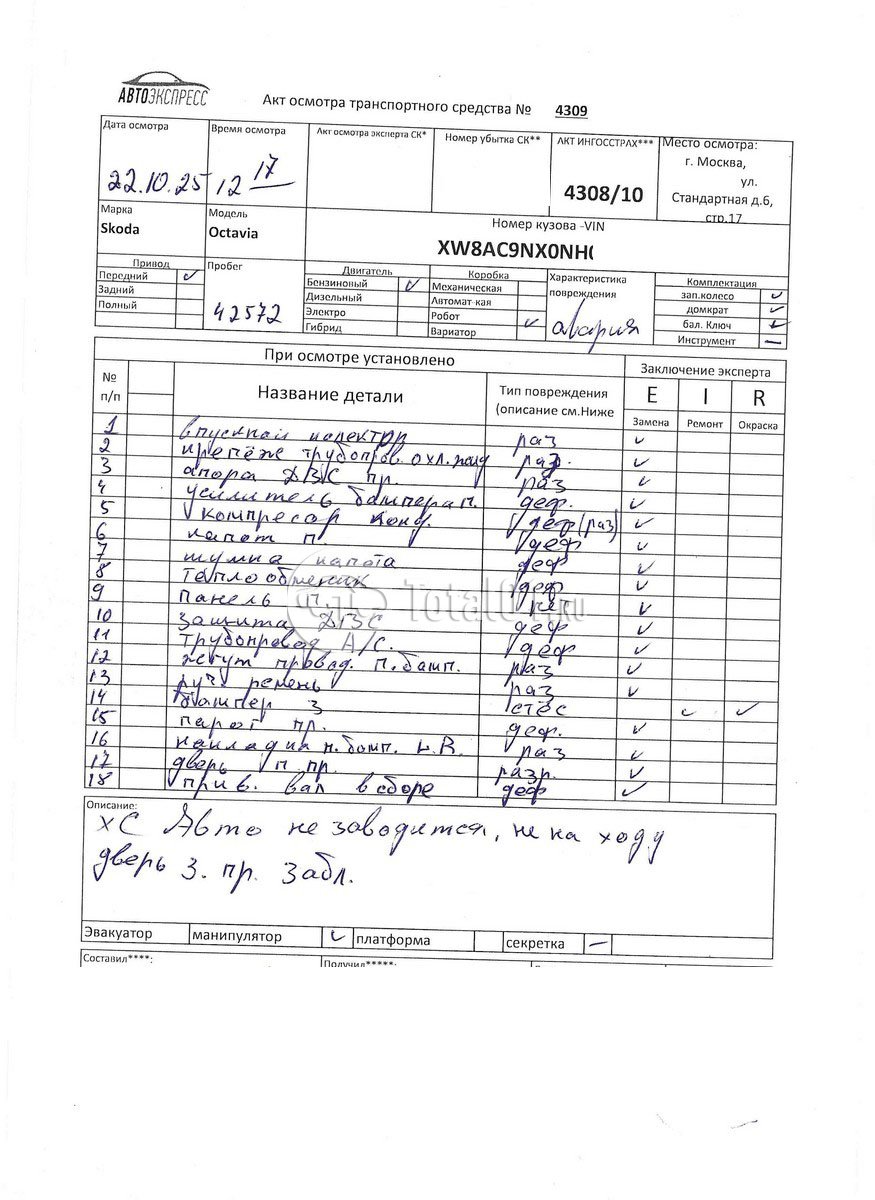 АВТОЭКСПРЕСС
Акт осмотра транспортного средства № 4309
Дата осмотра Время осмотра Акт осмотра эксперта СК* Номер убытка СК** АКТ ИНГОССТРАХ*** Место осмотра:
22.10.25 12 17 4308/10 г. Москва,
ул.
Стандартная д.6,
стр.17
Марка Модель Номер кузова -VIN
Skoda Octavia XW8AC9NX0NH
Привод Пробег Двигатель Коробка Характеристика повреждения Комплектация
Передний ✓ Бензиновый ✓ Механическая зап.колесо ✓
Задний Дизельный Автомат-кая домкрат ✓
Полный 42572 Электро Робот ✓ авария бал. Ключ ✓
Гибрид Вариатор Инструмент —
При осмотре установлено Заключение эксперта
№ п/п Название детали Тип повреждения (описание см.Ниже E I R
Замена Ремонт Окраска
1 впускной раз ✓
2 трубопров. охл. раз. ✓
3 апора ДВС пр. раз ✓
4 усилитель бампера п. деф. ✓
5 компресор конд. деф (раз) ✓
6 капот п. деф ✓
7 шумка капота деф ✓
8 теплообменик деф ✓
9 панель п. ✓
10 защита ДВС деф ✓
11 трубопровод А/С. деф ✓
12 жгут провод. п. бамп. раз ✓
13 ремень раз ✓
14 бампер З стёс ✓ ✓
15 парог пр. деф. ✓
16 накладка п. бамп. раз ✓
17 дверь п пр. разр. ✓
18 прив. вал в сборе деф ✓
Описание:
ХС Авто не заводится, не на ходу
дверь З. пр. Забл.
Эвакуатор манипулятор ✓ платформа секретка —
Составил****: Получил*****: